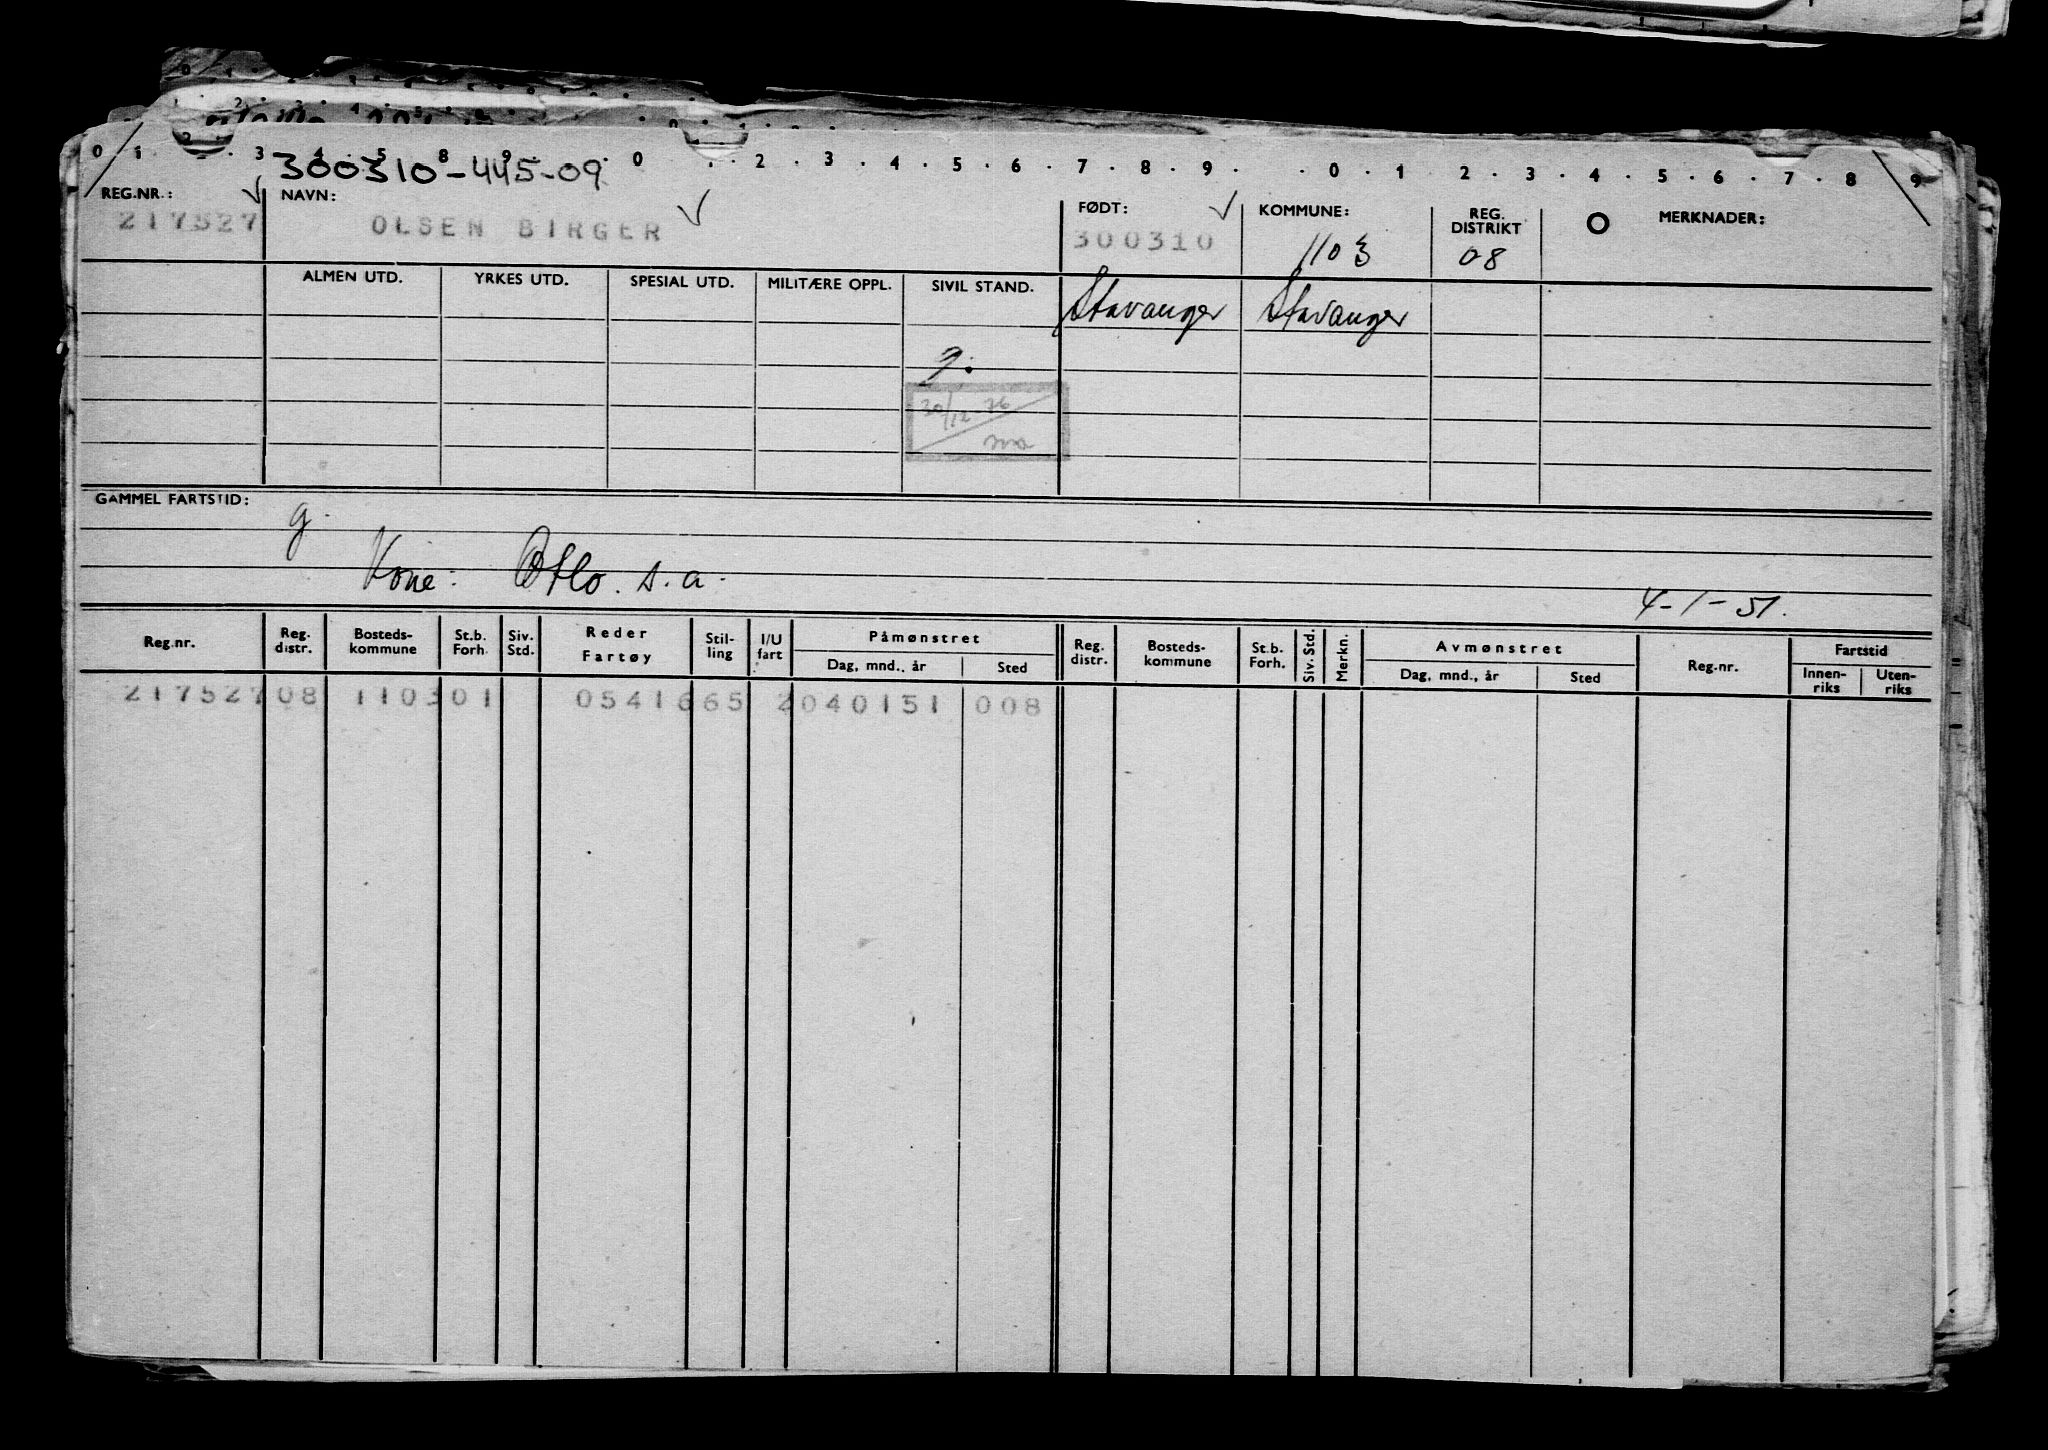 0 1 2 3 4 5 8 9 0 . 2 . 3 . 4 . 5 . 6 . 7 . 8 . 9 . 0 . 1 . 2 . 3 . 4 . 5 . 6 . 7 . 8 9
300310-445-09
REG.NR.: NAVN: FØDT: KOMMUNE: REG. DISTRIKT MERKNADER:
217527 OLSEN BIRGER 300310 1103 08
ALMEN UTD. YRKES UTD. SPESIAL UTD. MILITÆRE OPPL. SIVIL STAND. Stavanger Stavanger
g.
30/12-76
GAMMEL FARTSTID:
g.
Kone: Otlo. s.a.
4-1-51.
Reg.nr. Reg. distr. Bosteds-kommune St.b. Forh. Siv. Std. Reder Fartøy Stil-ling I/U fart Påmønstret Reg. distr. Bosteds-kommune St.b. Forh. Siv. Std. Merkn. Avmønstret Reg.nr. Fartstid
Dag, mnd., år Sted Dag, mnd., år Sted Innen-riks Uten-riks
217527 08 1103 01 0541665 2040151 008